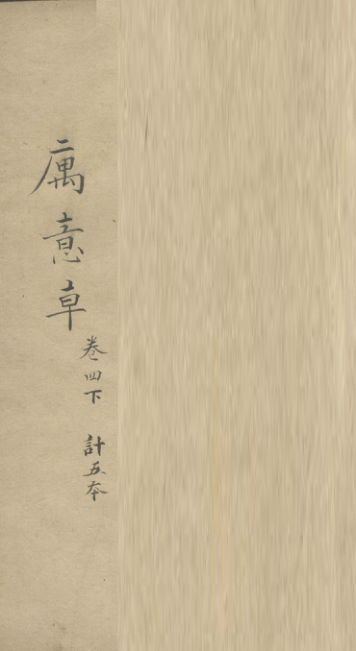 厲意草
卷四下 計五本